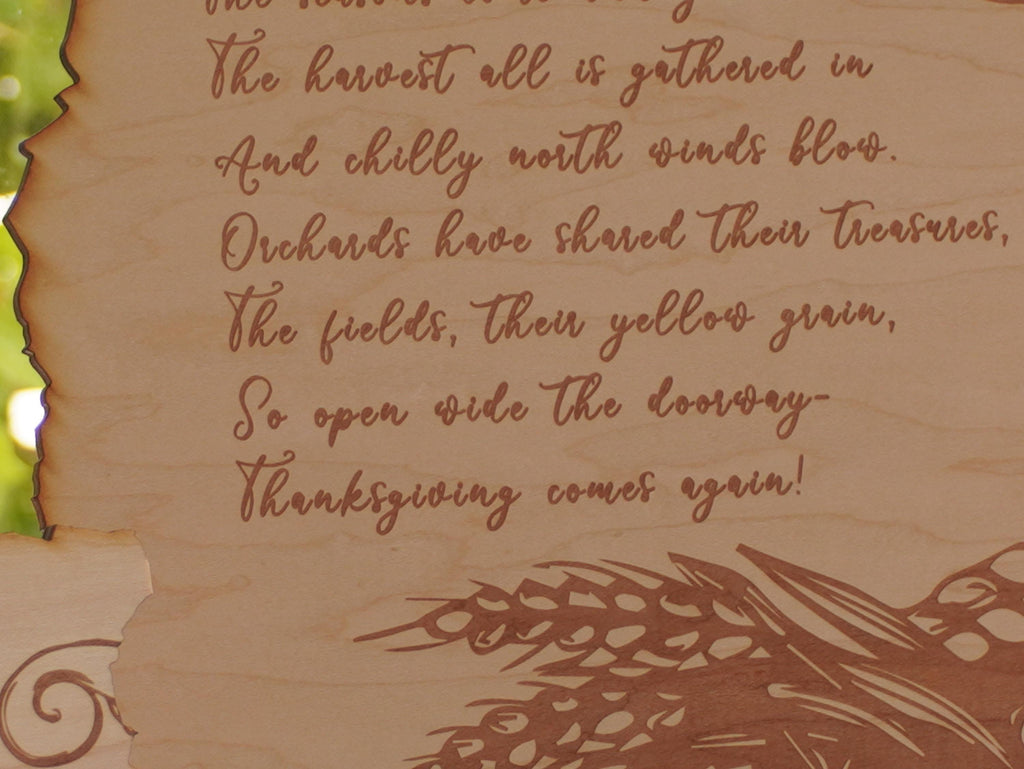 The harvest all is gathered in
And chilly north winds blow.
Orchards have shared their treasures,
The fields, their yellow grain,
So open wide the doorway-
Thanksgiving comes again!